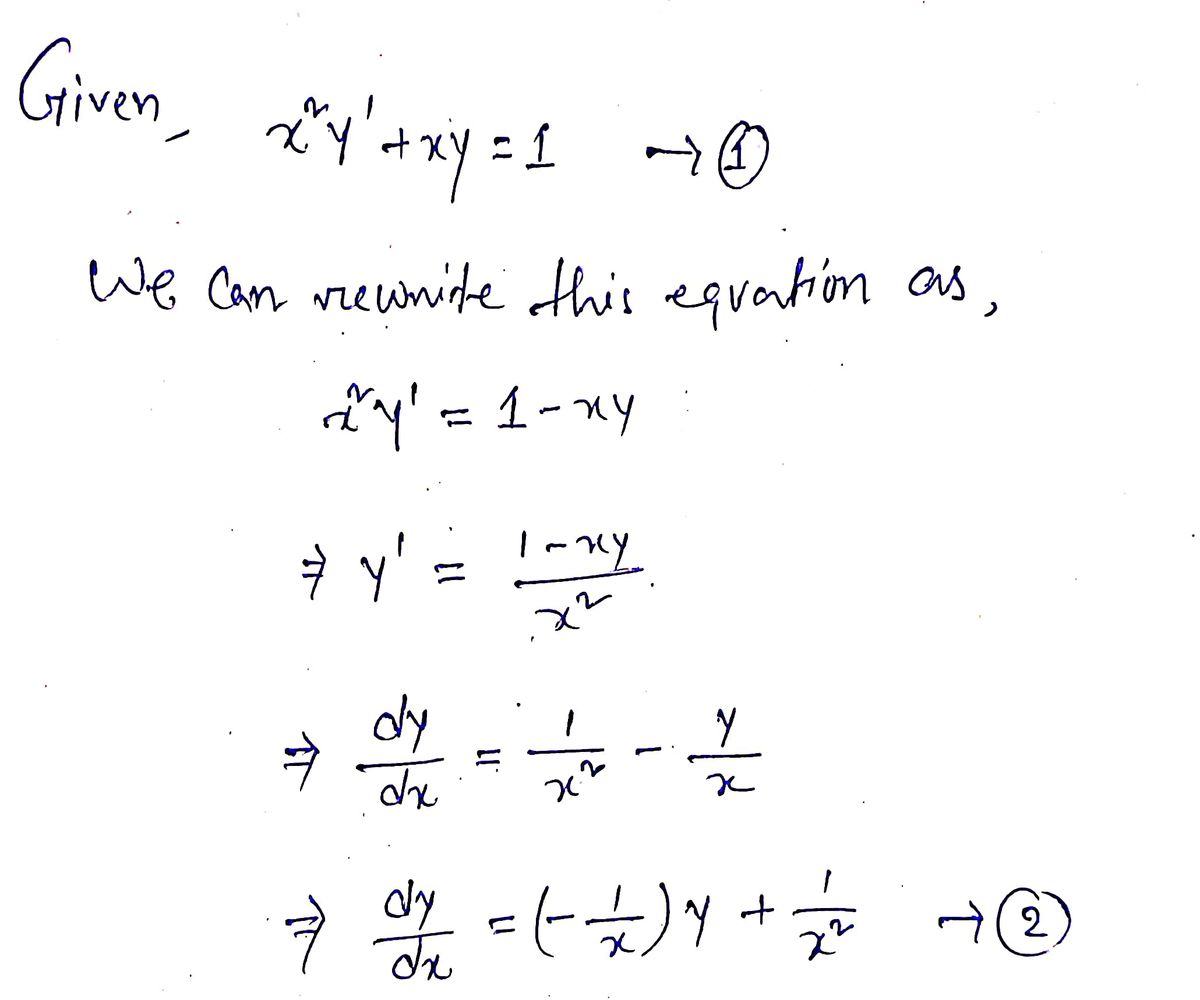 Given, x²y' + xy = 1 → ①
We can rewrite this equation as,
x²y' = 1 - xy
⇒ y' = \frac{1 - xy}{x²}
⇒ \frac{dy}{dx} = \frac{1}{x²} - \frac{y}{x}
⇒ \frac{dy}{dx} = (-\frac{1}{x}) y + \frac{1}{x²} → ②